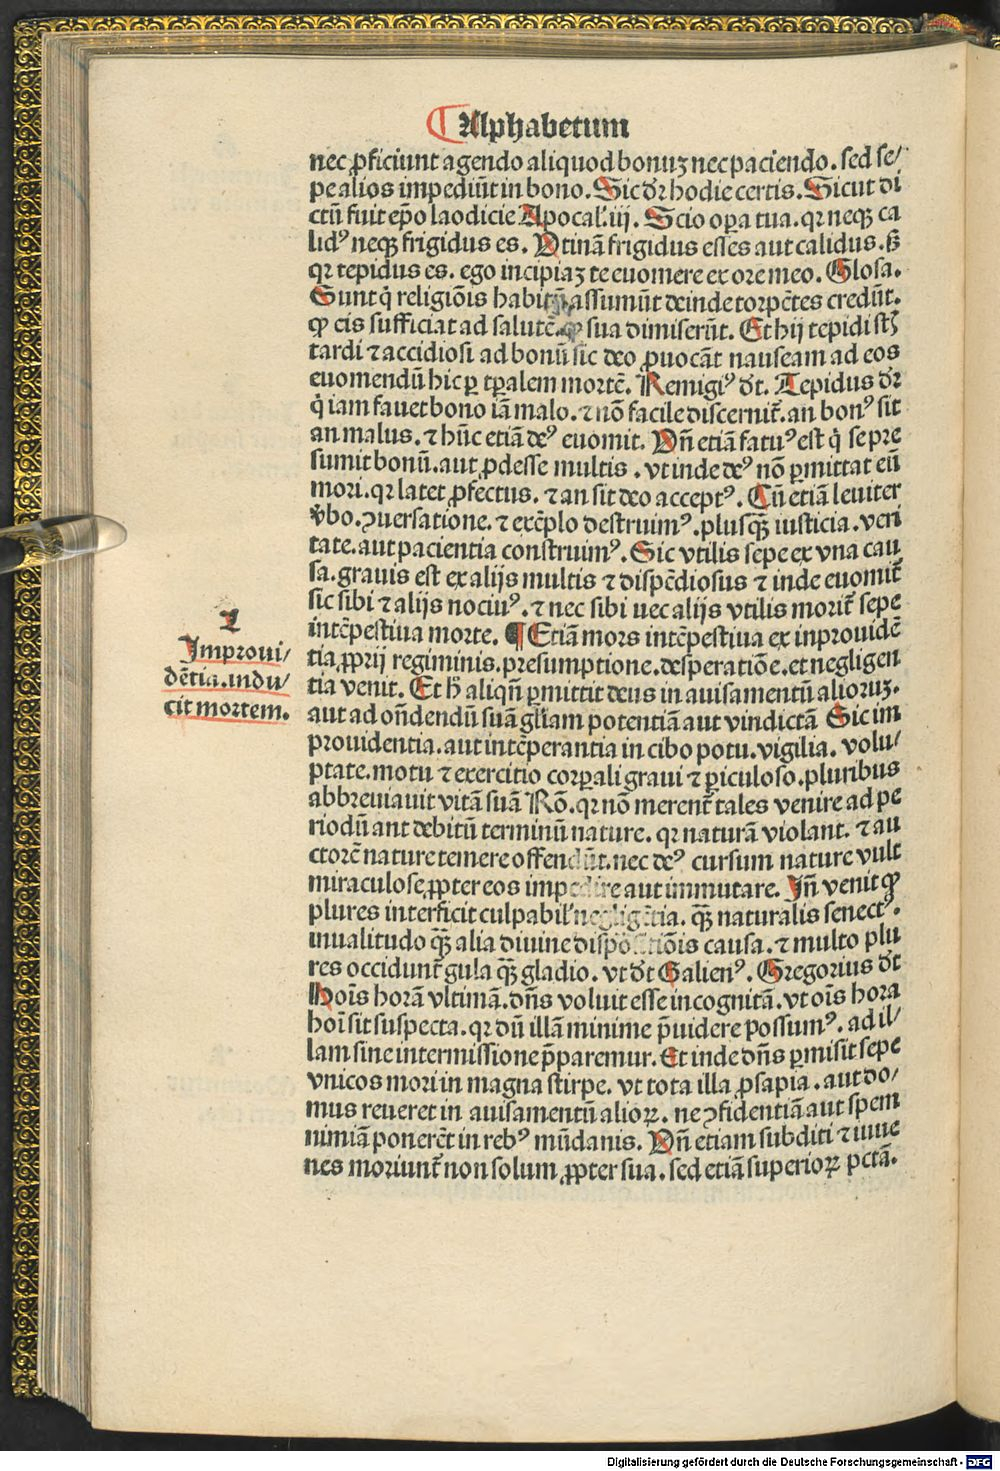 ¶ Alphabetum
nec ꝓficiunt agendo aliquod bonuꝫ nec paciendo. sed se/
pe alios impediūt in bono. Sic dr̄ hodie certis. Sicut di
ctū fuit ep̄o laodicie Apocal̕ iij. Scio oꝑa tua. qꝛ neqꝫ ca
lidꝰ neqꝫ frigidus es. Vtinā frigidus esses aut calidus. ß
qꝛ tepidus es. ego incipiaꝫ te euomere ex ore meo. Glosa.
Sunt q̇ religiōis habitū assumūt deinde torpētes credūt.
ꝙ eis sufficiat ad salutē. ꝙ sua dimiserūt. Et hij tepidi st̄
tardi ⁊ accidiosi ad bonū sic deo ꝓuocāt nauseam ad eos
euomendū hic ꝑ tꝑalem mortē. Remigiꝰ dt̄. Tepidus dr̄
q̇ iam fauet bono iā malo. ⁊ nō facile discernit᷑. an bonꝰ sit
an malus. ⁊ hūc etiā deꝰ euomit. Vn̄ etiā fatuꝰ est q̇ se pre
sumit bonū. aut ꝓdesse multis. vt inde deꝰ nō ꝑmittat eū
mori. qꝛ latet ꝓfectus. ⁊ an sit deo acceptꝰ. Cū etiā leuiter
v̄bo. ꝯuersatione. ⁊ exēplo destruimꝰ. plusqꝫ iusticia. veri
tate. aut pacientia construimꝰ. Sic vtilis sepe ex vna cau
sa. grauis est ex alijs multis ⁊ dispēdiosus ⁊ inde euomit᷑
sic sibi ⁊ alijs nociuꝰ. ⁊ nec sibi uec alijs vtilis morit᷑ sepe
intēpestiua morte. ¶ Etiā mors intēpestiua ex inprouidē
tia ꝓprij regiminis. presumptione. desperatiōe. et negligen
tia venit. Et h̄ aliqn̄ ꝑmittit deus in auisamentū alioruꝫ.
aut ad on̄dendū suā gl̄iam potentiā aut vindictā Sic im
prouidentia. aut intēperantia in cibo potu. vigilia. volu/
ptate. motu ⁊ exercitio corꝑali graui ⁊ ꝑiculoso. pluribus
abbreuiauit vitā suā Rō. qꝛ nō merent᷑ tales venire ad pe
riodū ant debitū terminū nature. qꝛ naturā violant. ⁊ au
ctorē nature temere offendūt. nec deꝰ cursum nature vult
miraculose ꝓpter eos impedire aut immutare. In̄ venit ꝙ
plures interficit culpabil̕ negligētia. qꝫ̄ naturalis senectꝰ.
inualitudo qꝫ̄ alia diuine dispositiōis causa. ⁊ multo plu
res occidunt᷑ gula qꝫ̄ gladio. vt dt̄ Galienꝰ. Gregorius dt̄
Hoīs horā vltimā. dn̄s voluit esse incognitā. vt oīs hora
hoī sit suspecta. qꝛ dū illā minime p̄uidere possumꝰ. ad il/
lam sine intermissione p̄paremur. Et inde dn̄s ꝑmisit sepe
vnicos mori in magna stirpe. vt tota illa ꝓsapia. aut do/
mus reueret in auisamentū alioꝝ. ne ꝯfidentiā aut spem
nimiā ponerēt in rebꝰ mūdanis. Vn̄ etiam subditi ⁊ iuue
nes moriunt᷑ non solum ꝓpter sua. sed etiā superioꝝ pctā.
Improui/
dētia. indu/
cit mortem.
Digitalisierung gefördert durch die Deutsche Forschungsgemeinschaft - DFG